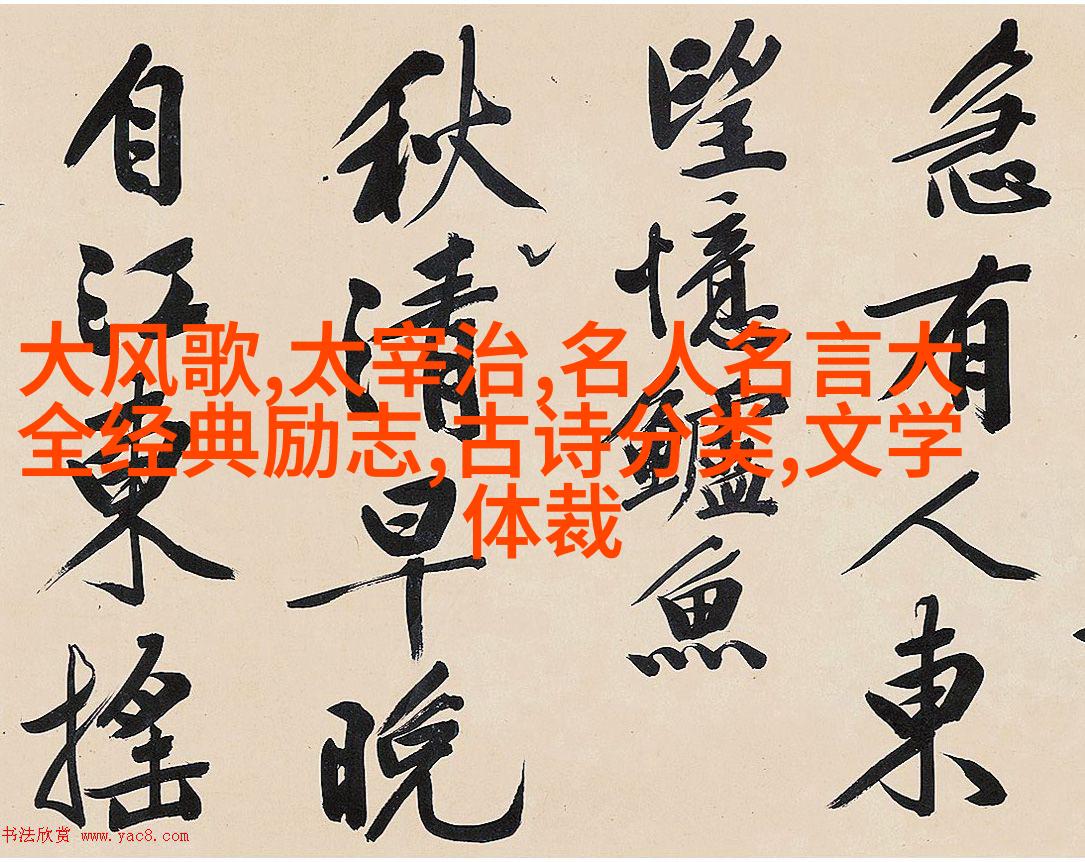 急有人東
望憶鱸魚
秋清早晚
自江東搖
大风歌,太宰治,名人名言大
全经典励志,古诗分类,文学
体裁
书法欣赏 www.yac8.com